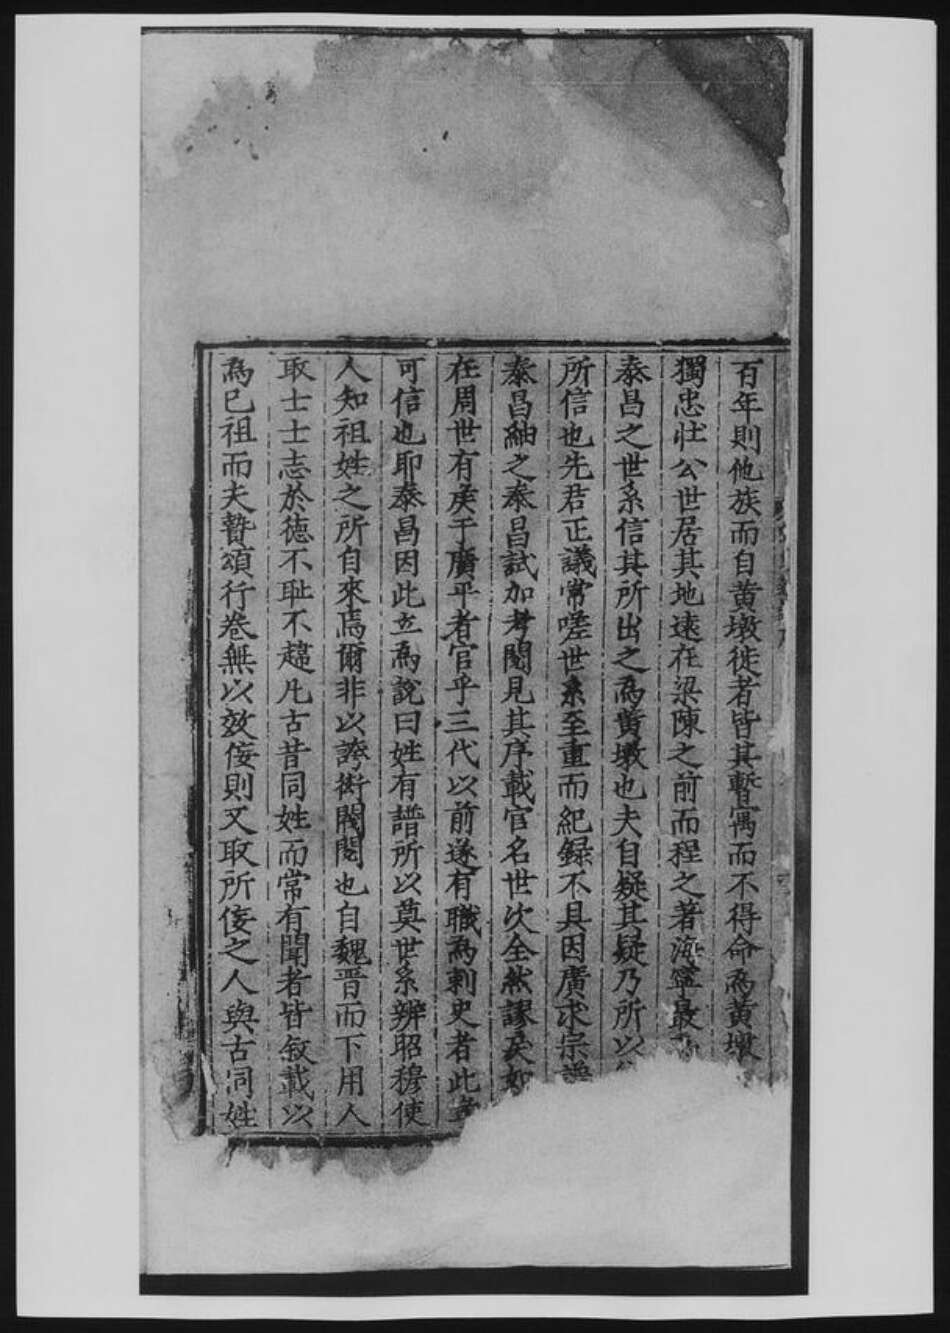 百年則他族而自黃墩徙者皆其暫寓而不得命為黃墩
獨忠壯公世居其地遠在梁陳之前而程之著海寧最
泰昌之世系信其所出之為黃墩也夫自疑其疑乃所以
所信也先君正議常嗟世系至重而紀録不具因廣求宗譜
泰昌紬之泰昌試加考閱見其序載官名世次全然謬戾如
在周世有侯于廣平者官乎三代以前遂有職為刺史者此豈
可信也耶泰昌因此立為說曰姓有譜所以奠世系辨昭穆使
人知祖姓之所自來焉爾非以誇衒閥閱也自魏晋而下用人
取士士志於德不耻不趨凡古昔同姓而常有聞者皆叙載以
為已祖而夫贊頌行卷無以效侫則又取所侫之人與古同姓